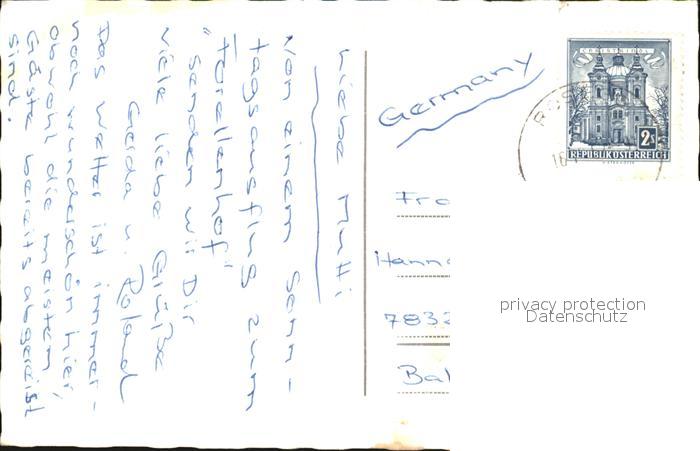 Liebe Mutti
Von einem Sonn-
tagsausflug zum
"Forellenhof"
senden wir Dir
viele liebe Grüße
Gerda u. Roland
Das Wetter ist immer-
noch wunderschön hier,
obwohl die meisten
Gäste bereits abgereist
sind.
Germany
CHRISTKINDL
2S
REPUBLIK ÖSTERREICH
Hanno
7832
privacy protection
Datenschutz